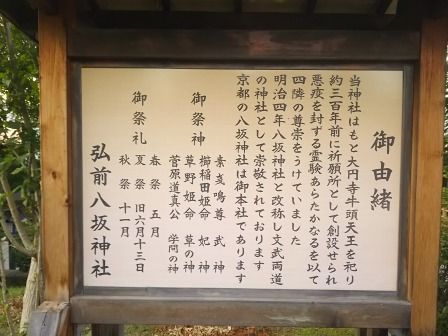 御由緒
当神社はもと大円寺牛頭天王を祀り
約三百年前に祈願所として創設せられ
悪疫を封ずる霊験あらたかなるを以て
四隣の尊崇をうけていました
明治四年八坂神社と改称し文武両道
の神社として崇敬されております
京都の八坂神社は御本社であります
御祭神
素戔鳴尊 武神
櫛稲田姫命 妃神
草野姫命 草の神
菅原道真公 学問の神
御祭礼
春祭 五月
夏祭 旧六月十三日
秋祭 十一月
弘前八坂神社